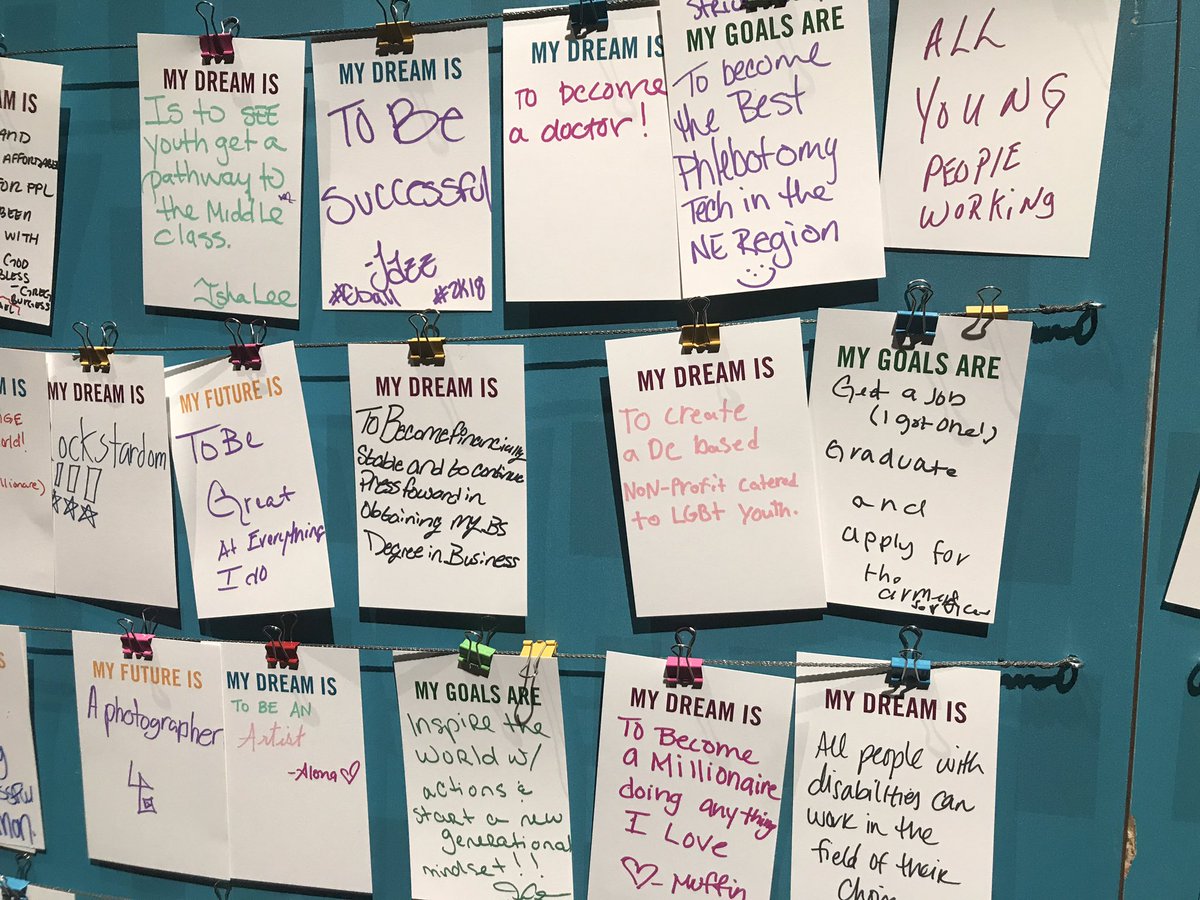 M IS
AND
AFFORDABLE
FOR PPL
BEEN
WITH
GOD
BLESS
-GREG
BURGESS
MY DREAM IS
Is to SEE
youth get a
pathway to
the Middle
class.
Isha Lee
MY DREAM IS
To Be
Successful
-JDEE
#Eball #2K18
MY DREAM IS
To become
a doctor!
MY GOALS ARE
To become
the Best
Phlebotomy
Tech in the
NE Region
ALL
YOUNG
PEOPLE
WORKING
IS
MY DREAM IS
ockstardom
!!!
MY FUTURE IS
To Be
Great
At Everything
I do
MY DREAM IS
To Become financially
Stable and to continue
Press foward in
obtaining my BS
Degree in Business
MY DREAM IS
To create
a DC based
NON-Profit catered
to LGBT Youth.
MY GOALS ARE
Get a Job
(I got one!)
Graduate
and
apply for
the
armed
services
MY FUTURE IS
A photographer
MY DREAM IS
TO BE AN
Artist
-Alona
MY GOALS ARE
Inspire the
World w/
actions &
start a new
generational
mindset!!
MY DREAM IS
To Become
a Millionaire
doing anything
I Love
- Muffin
MY DREAM IS
All people with
disabilities can
work in the
field of their